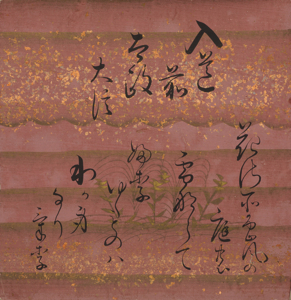 入道
前
太政
大臣
花さそふ嵐の
庭の
雪ならて
ふり
ゆくものハ
わか身
なり
けり